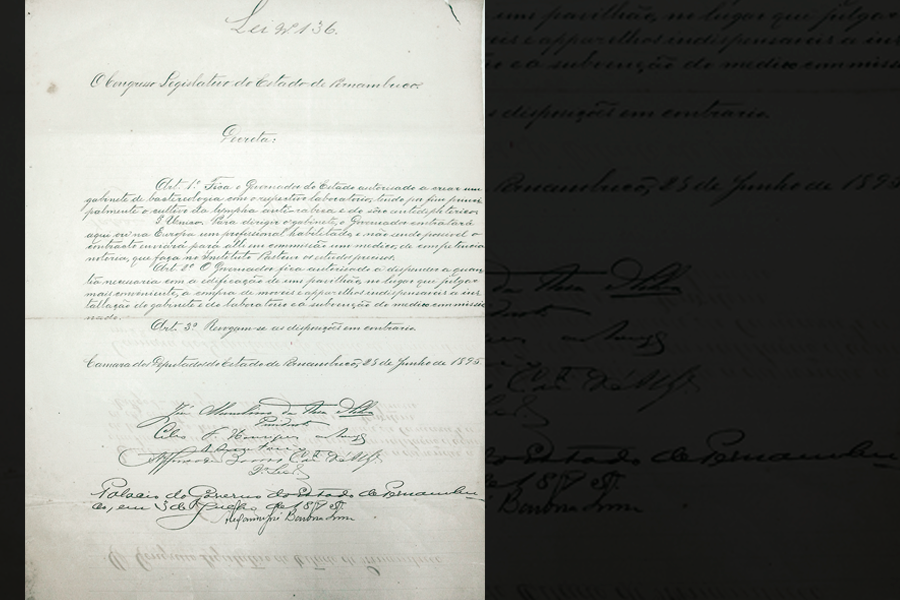 Lei Nº 136.
O Congresso Legislativo do Estado de Pernambuco.
Decreta:
Art. 1º Fica o Governador do Estado autorisado a crear um
gabinete de bacteriologia com o respectivo laboratorio, tendo por fim princi
palmente o cultivo da lympha anti-rabica e do sôro antidiphterico.
§ Unico. Para dirigir o gabinete, o Governador contratará
aqui ou na Europa um profissional habilitado, e não sendo possivel o
contracto enviará para alli em commissão um medico, de competencia
notoria, que faça no Instituto Pasteur os estudos precisos.
Art. 2º O Governador fica autorisado a despender a quan
tia necessaria com a edificação de um pavilhão, no lugar que julgar
mais conveniente, a compra de moveis e apparelhos indispensaveis a ins
tallação do gabinete e do laboratorio e á subvenção do medico commissio
nado.
Art. 3º Revogam-se as disposições em contrario.
Camara dos Deputados do Estado de Pernambuco, 25 de Junho de 1895
José
Presidente
Palacio do Governo do Estado de Pernambu
co, em 3 de Julho de 1895
Alexandre José Barbosa Lima